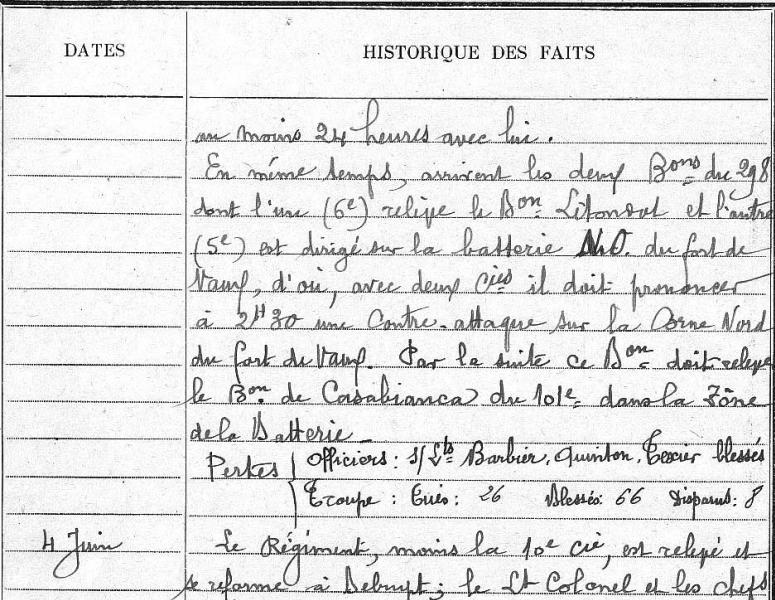 DATES
HISTORIQUE DES FAITS
au moins 24 heures avec lui.
En même temps, arrivent les deux Bons du 298
dont l'un (6e) relève le Bon Litonsut et l'autre
(5e) est dirigé sur la batterie N.O. du fort de
Vaux, d'où, avec deux Cies il doit prononcer
à 2H30 une Contre-attaque sur la Corne Nord
du fort de Vaux. Par la suite ce Bon doit relever
le Bon de Casabianca du 101e dans la Zône
de la Batterie
Pertes Officiers: S/Lts Barbier, Quinton, Texier blessés
Troupe: Tués: 26 Blessés: 66 Disparus: 8
4 Juin
Le Régiment, moins la 10e Cie, est relevé et
se reforme à ; le Lt Colonel et les chefs